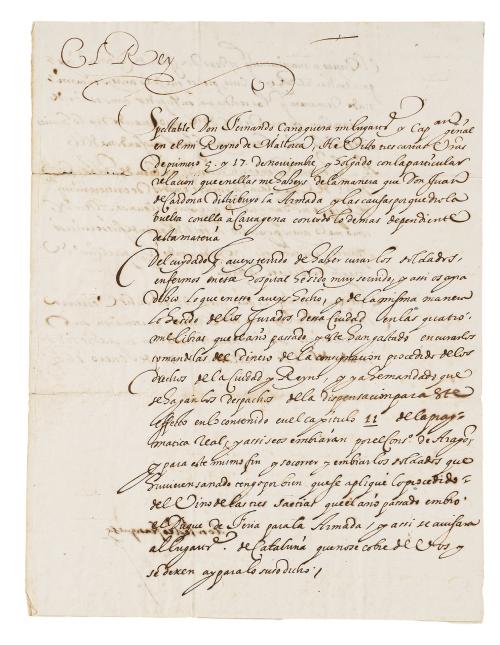 El Rey
Spectable Don Fernando Canoguera mi lugarte y Capan general
en el mi Reyno de Mallorca, He visto tres cartas vras
de primero 5. y 17 De noviembre, y holgado con la particular
relacion que en ellas me haseys de la manera que Don Juan
de Cardona distribuyo la Armada y las causas porque dio la
buelta con ella a Cartagena con todo lo demas dependiente
desta materia
Del cuydado q. aveys tenido de haser curar los soldados
enfermos en esse hospital he sido muy servido, y assi os agra
desco lo que en esto aveys hecho, y de la misma manera
lo he sido de los Jurados dessa Ciudad, en las quatro
mil libras que el año passado y este han gastado en curarlos
tomandolas del dinero de la consignacion procedido de los
drechos de la Ciudad y Reyno, y ya he mandado que
se hagan los despachos de la dispensacion para este
effetto en lo contenido en el capitulo 11 de la prag
matica real, y assi se os embiaran por el Cons. de Aragon
y para este mismo fin y socorrer y embiar los soldados que
huvieren sanado tengo por bien que se aplique lo procedido
del Vino de las tres saetias que el año passado embio
el Duque de Feria para la Armada, y assi se avisara
al lugarte. de Cataluña que no se cobre de Vos y
se dexen ay para lo susodicho,